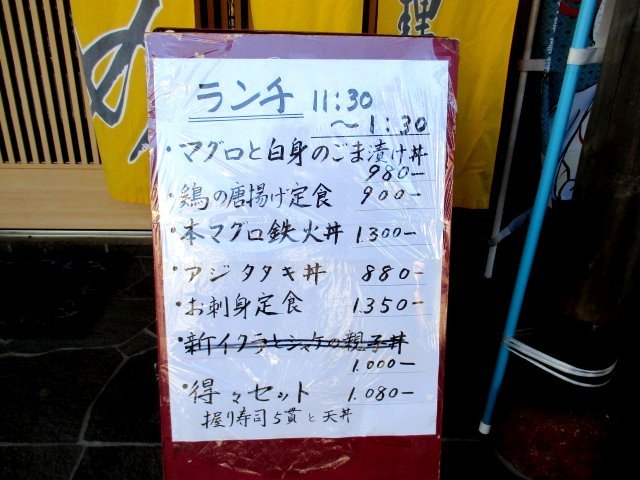 ランチ 11:30
〜1:30
・マグロと白身のごま漬け丼
980-
・鶏の唐揚げ定食 900-
・本マグロ鉄火丼 1.300-
・アジタタキ丼 880-
・お刺身定食 1.350-
・新イクラとシャケの親子丼
1.000-
・得々セット 1.080-
握り寿司5貫と天丼
理